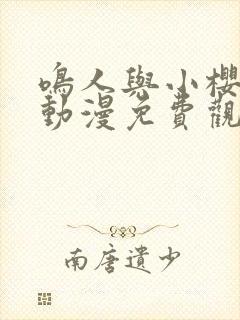 鳴人與小櫻
動漫免費觀
南唐遺少